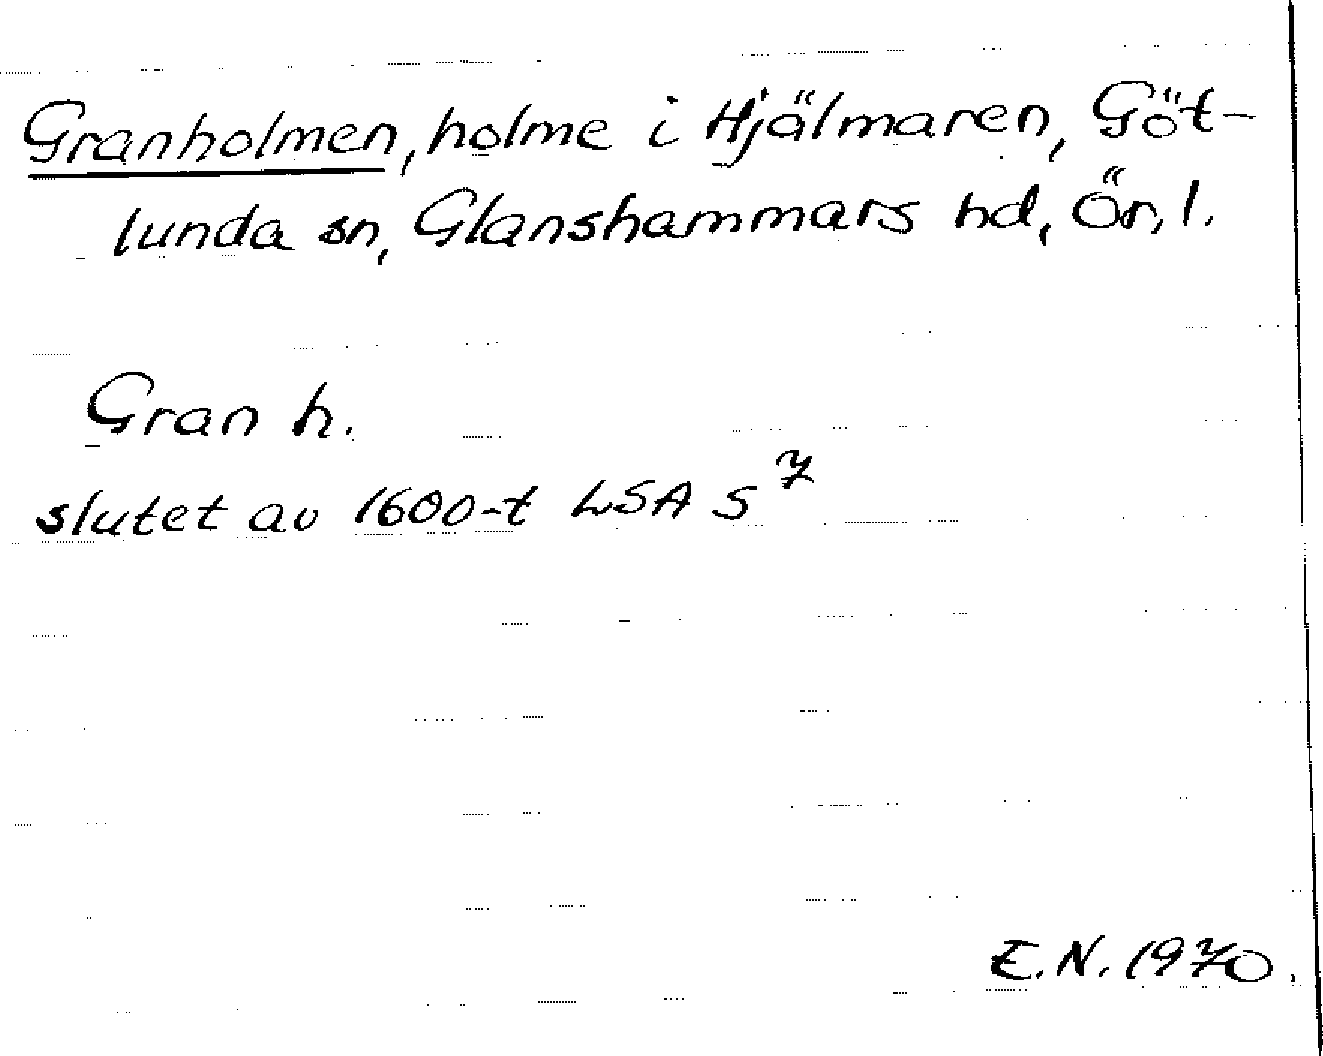 Granholmen, holme i Hjälmaren, Göt-
lunda sn, Glanshammars hd, Ör. l.
Gran h.
slutet av 1600-t LSA S 7
E.N. 1970.